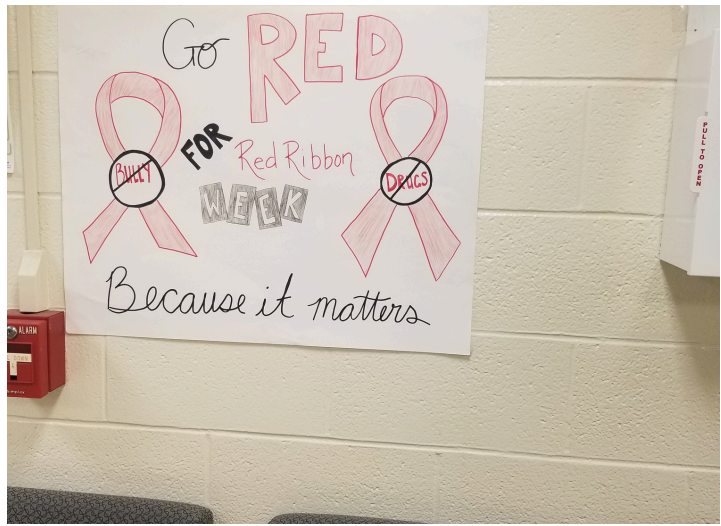 Go RED
FOR Red Ribbon
WEEK
BULLY
DRUGS
Because it matters
ALARM
PULL TO OPEN